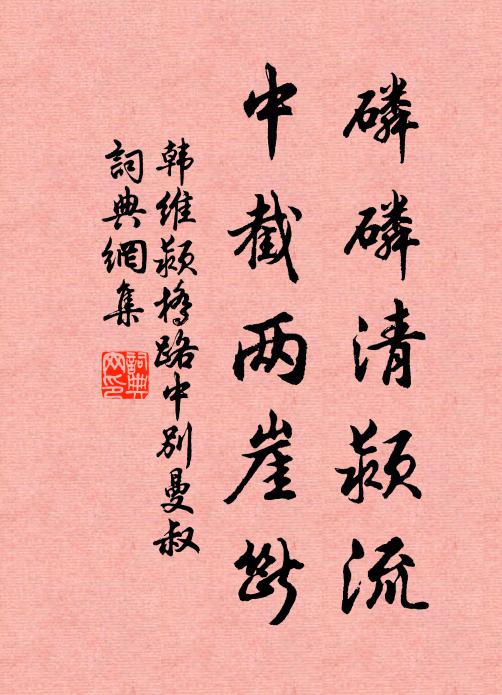 磷磷清颍流
中截两崖断
韩维颍桥路中别曼叔
詞典網集
詞典网印